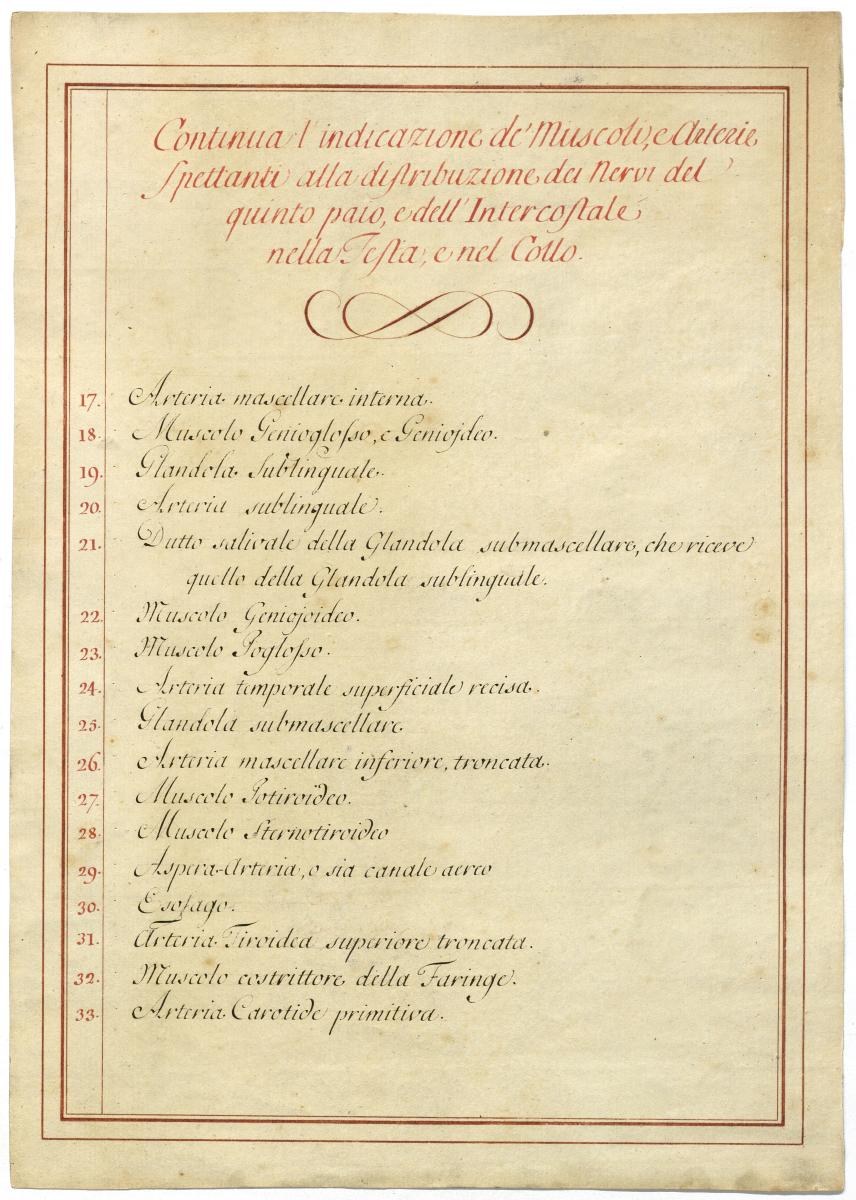 Continua l'indicazione de' Muscoli, e Arterie
Spettanti alla distribuzione dei Nervi del
quinto paio, e dell'Intercostale
nella Testa, e nel Collo.
17. Arteria mascellare interna.
18. Muscolo Genioglosso, e Geniojdeo.
19. Glandola Sublinguale.
20. Arteria sublinguale.
21. Dutto salivale della Glandola submascellare, che riceve
quello della Glandola sublinguale.
22. Muscolo Geniojoideo.
23. Muscolo Joglosso.
24. Arteria temporale superficiale recisa.
25. Glandola submascellare.
26. Arteria mascellare inferiore, troncata.
27. Muscolo Jotiroideo.
28. Muscolo Sternotiroideo
29. Aspera-Arteria, o sia canale aereo
30. Esofago.
31. Arteria Tiroidea superiore troncata.
32. Muscolo costrittore della Faringe.
33. Arteria Carotide primitiva.